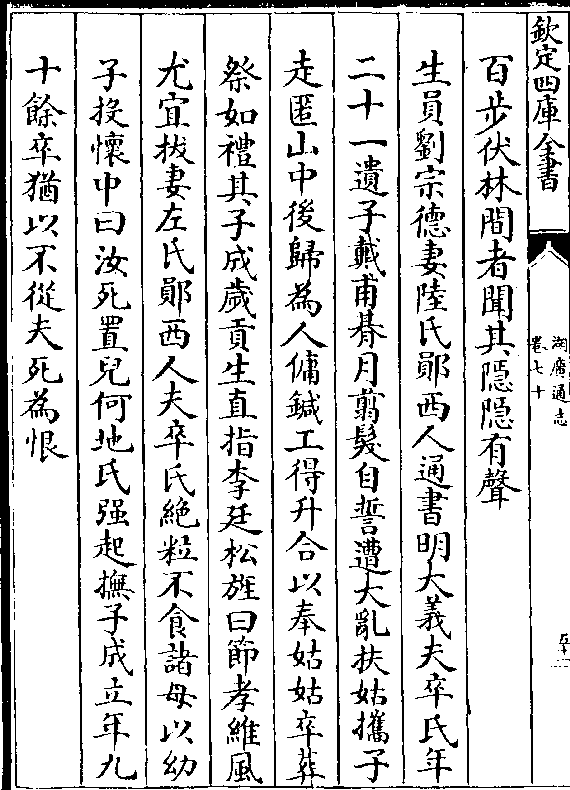 欽定四庫全書
湖廣通志
卷七十
百步伏林間者聞其隱隱有聲
生員劉宗德妻陸氏鄖西人通書明大義夫卒氏年
二十一遺子戴甫朞月翦髮自誓遭大亂扶姑攜子
走匿山中後歸為人傭鍼工得升合以奉姑姑卒葬
祭如禮其子成歲貢生直指李廷松旌曰節孝維風
尤宜拔妻左氏鄖西人夫卒氏絶粒不食諸母以幼
子投懷中曰汝死置兒何地氏强起撫子成立年九
十餘卒猶以不從夫死為恨